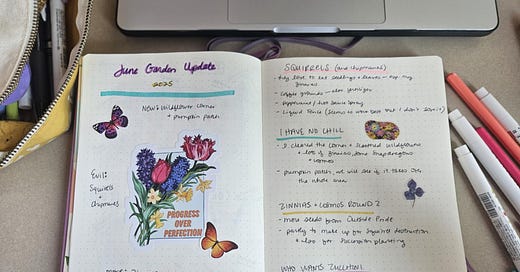 June Garden Update
2025
New: Wildflower corner
+ pumpkin patch
Evil:
Squirrels
+
Chipmunks
PROGRESS
OVER
PERFECTION
SQUIRRELS (and chipmunks)
- they love to eat seedlings + leaves - esp. my
zinnias
- Coffee grounds - also
- Peppermint / hot sauce spray
- Liquid Fence (seems to work best but I don't love it)
I HAVE NO CHILL
- I cleared the corner + scattered wildflowers
+ lots of zinnias, some snapdragons
+ cosmos
- pumpkin patch, we will see if it takes over
the whole area
ZINNIAS + COSMOS ROUND 2
- more seeds from Outside Pride
- partly to make up for squirrel destruction
+ also for succession planting
WHO WANTS ZUCCHINI